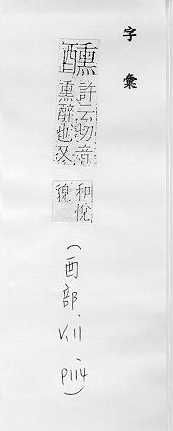 字彙
醺
許云切音
熏醉也又
和悅
貌
(酉部, V.11 p114)